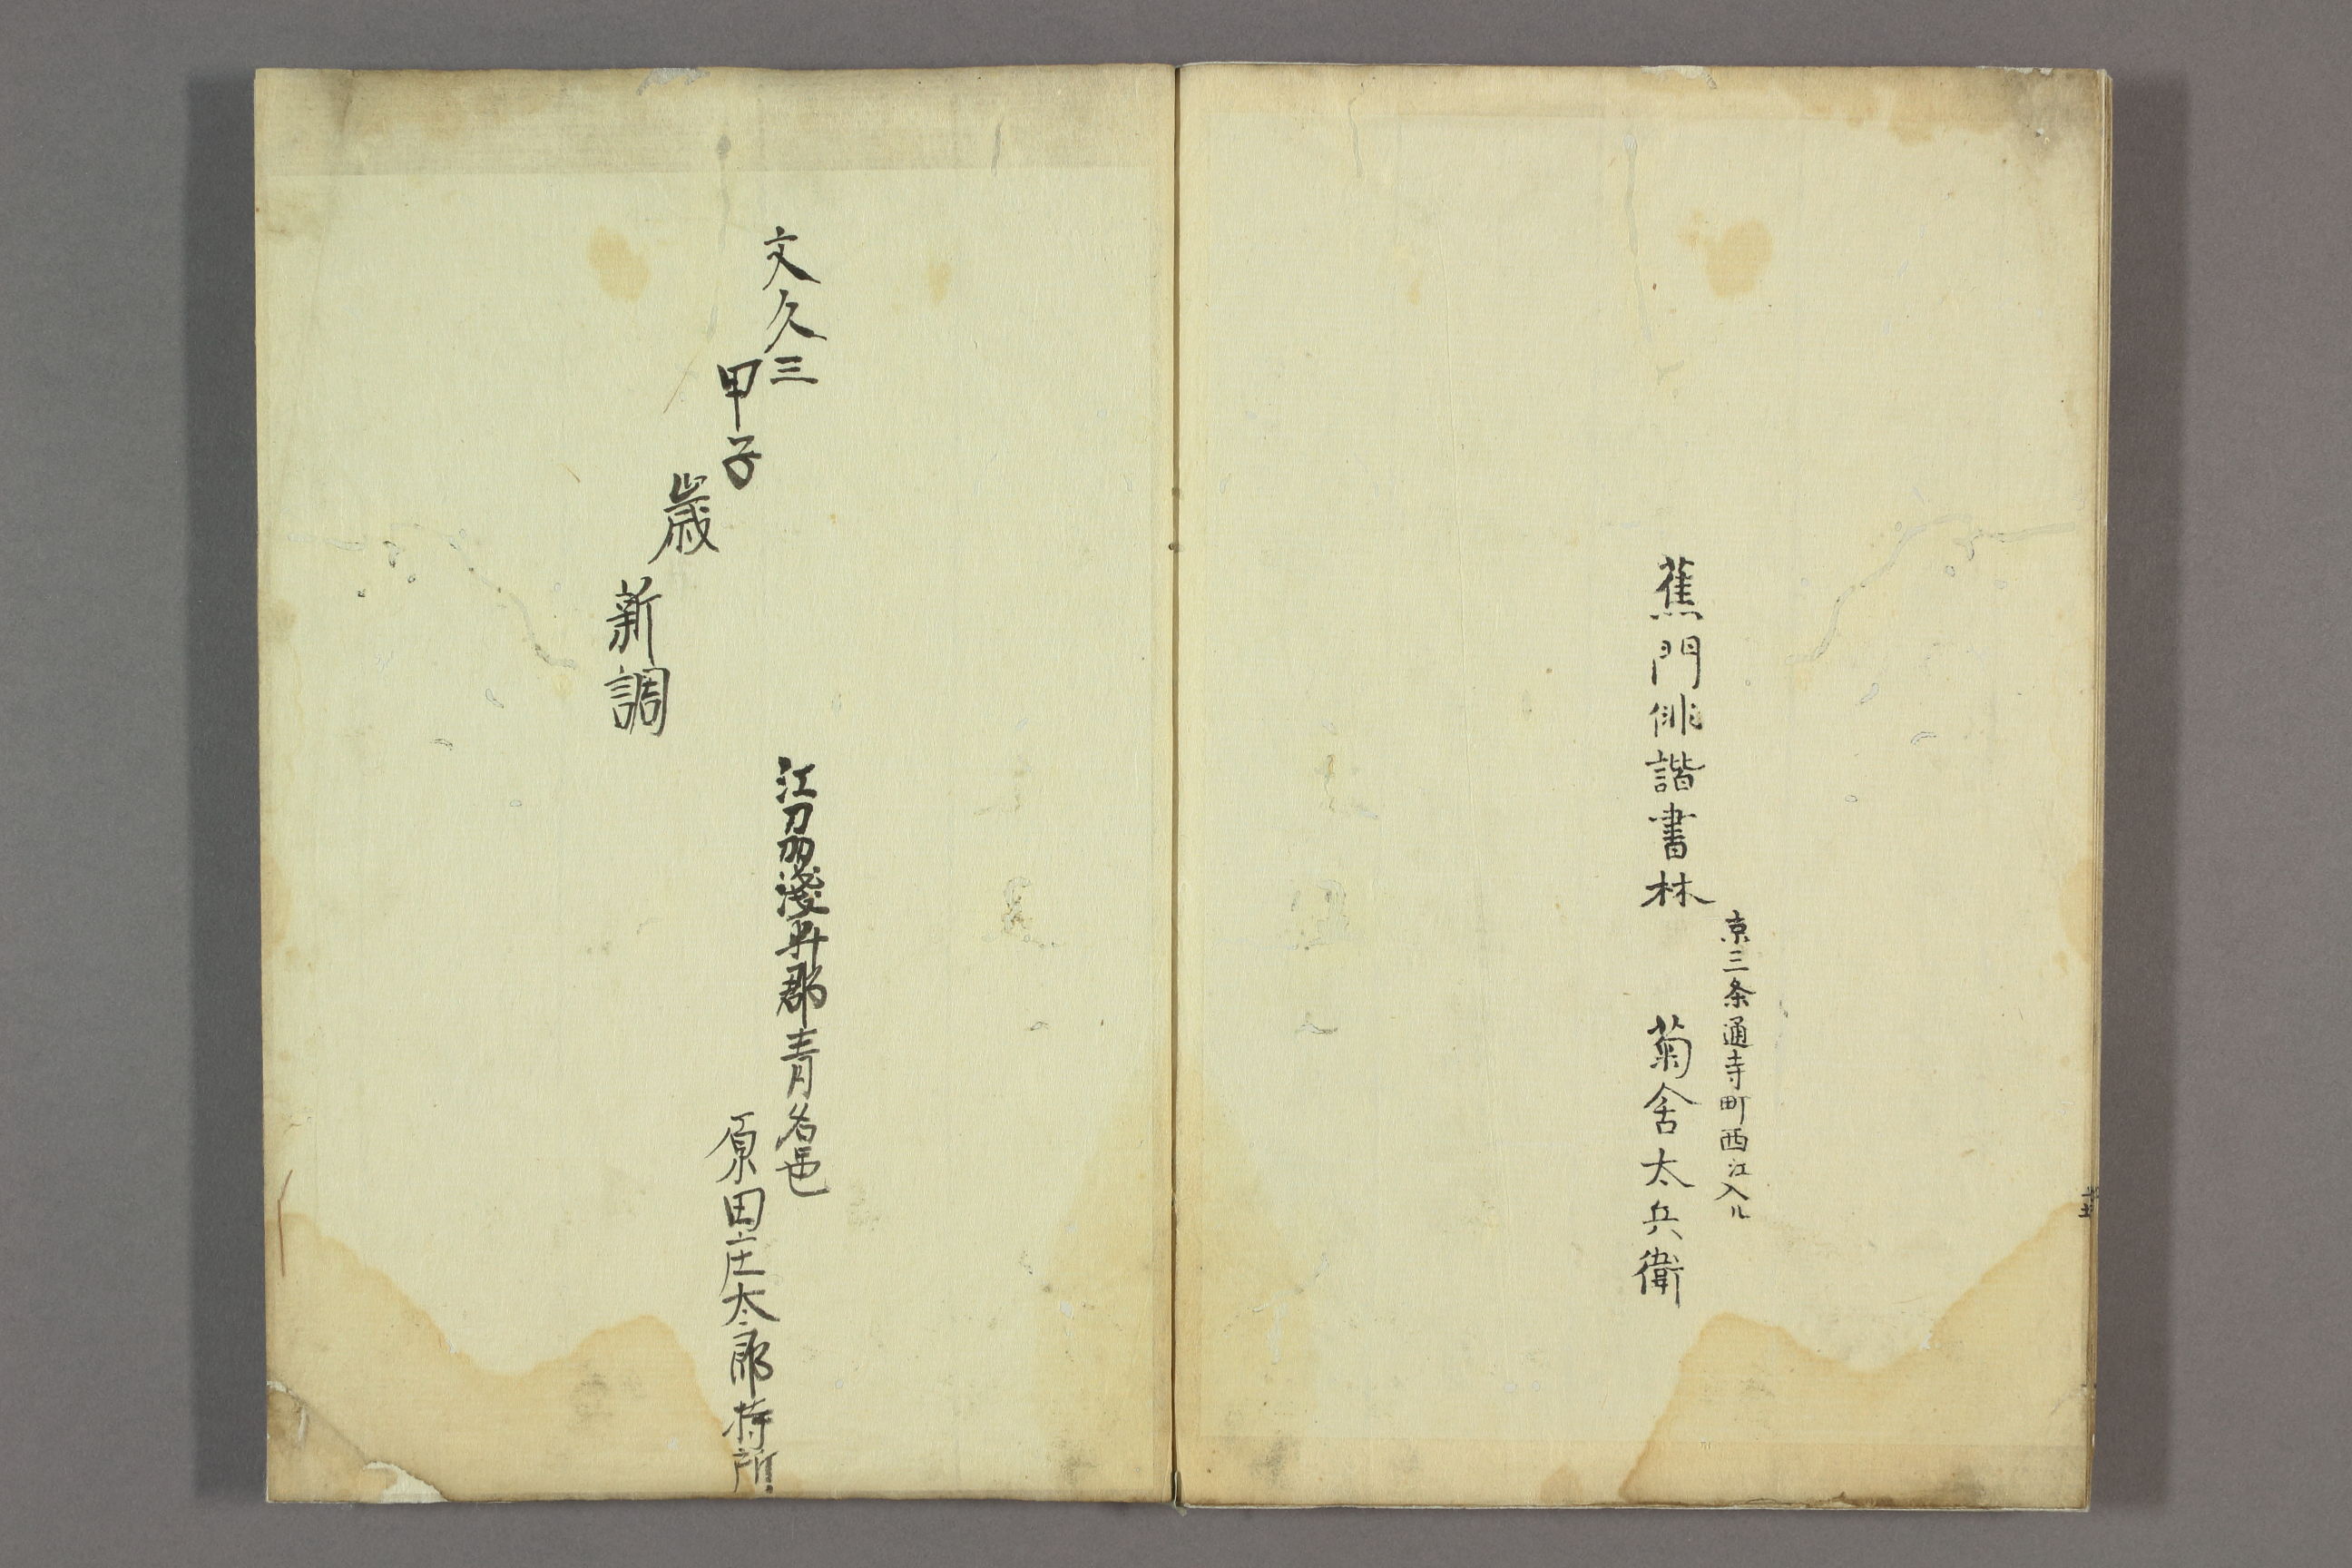 蕉門俳諧書林
京三条通寺町西江入ル
菊舎太兵衛
文久三
甲子
歳
新調
江刕淺井郡青名邑
原田庄太郎持所